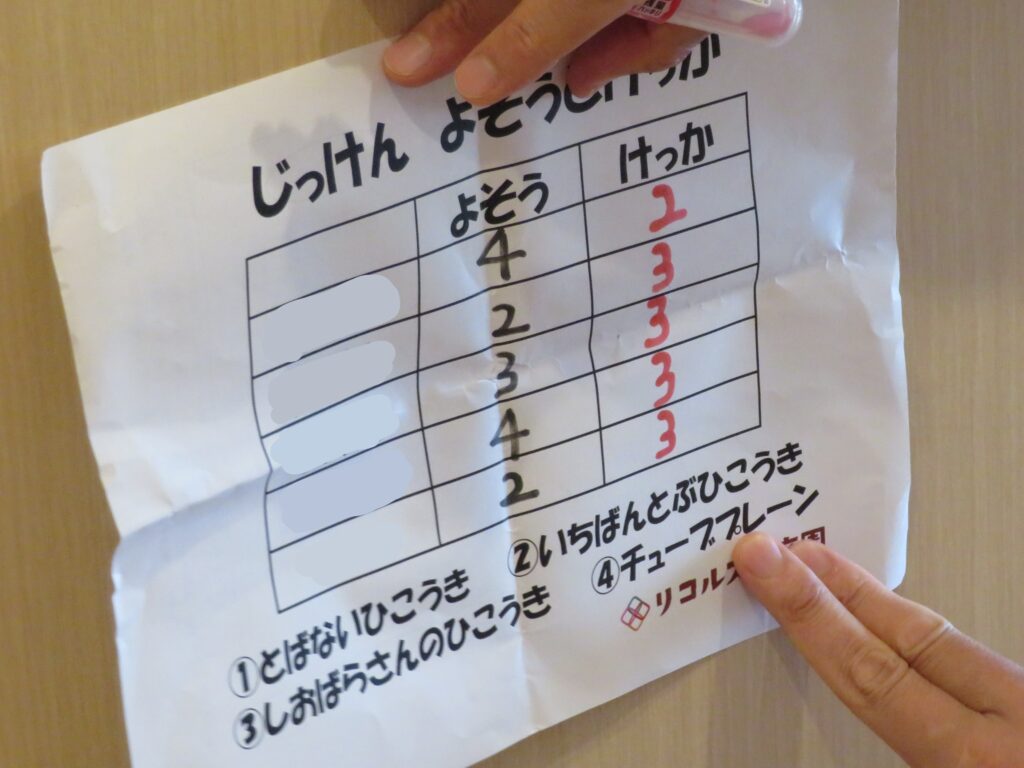 じっけん よそうとけっか
よそう けっか
4 2
2 3
3 3
4 3
2 3
①とばないひこうき ②いちばんとぶひこうき
③しおばらさんのひこうき ④チューブプレーン
リコルス